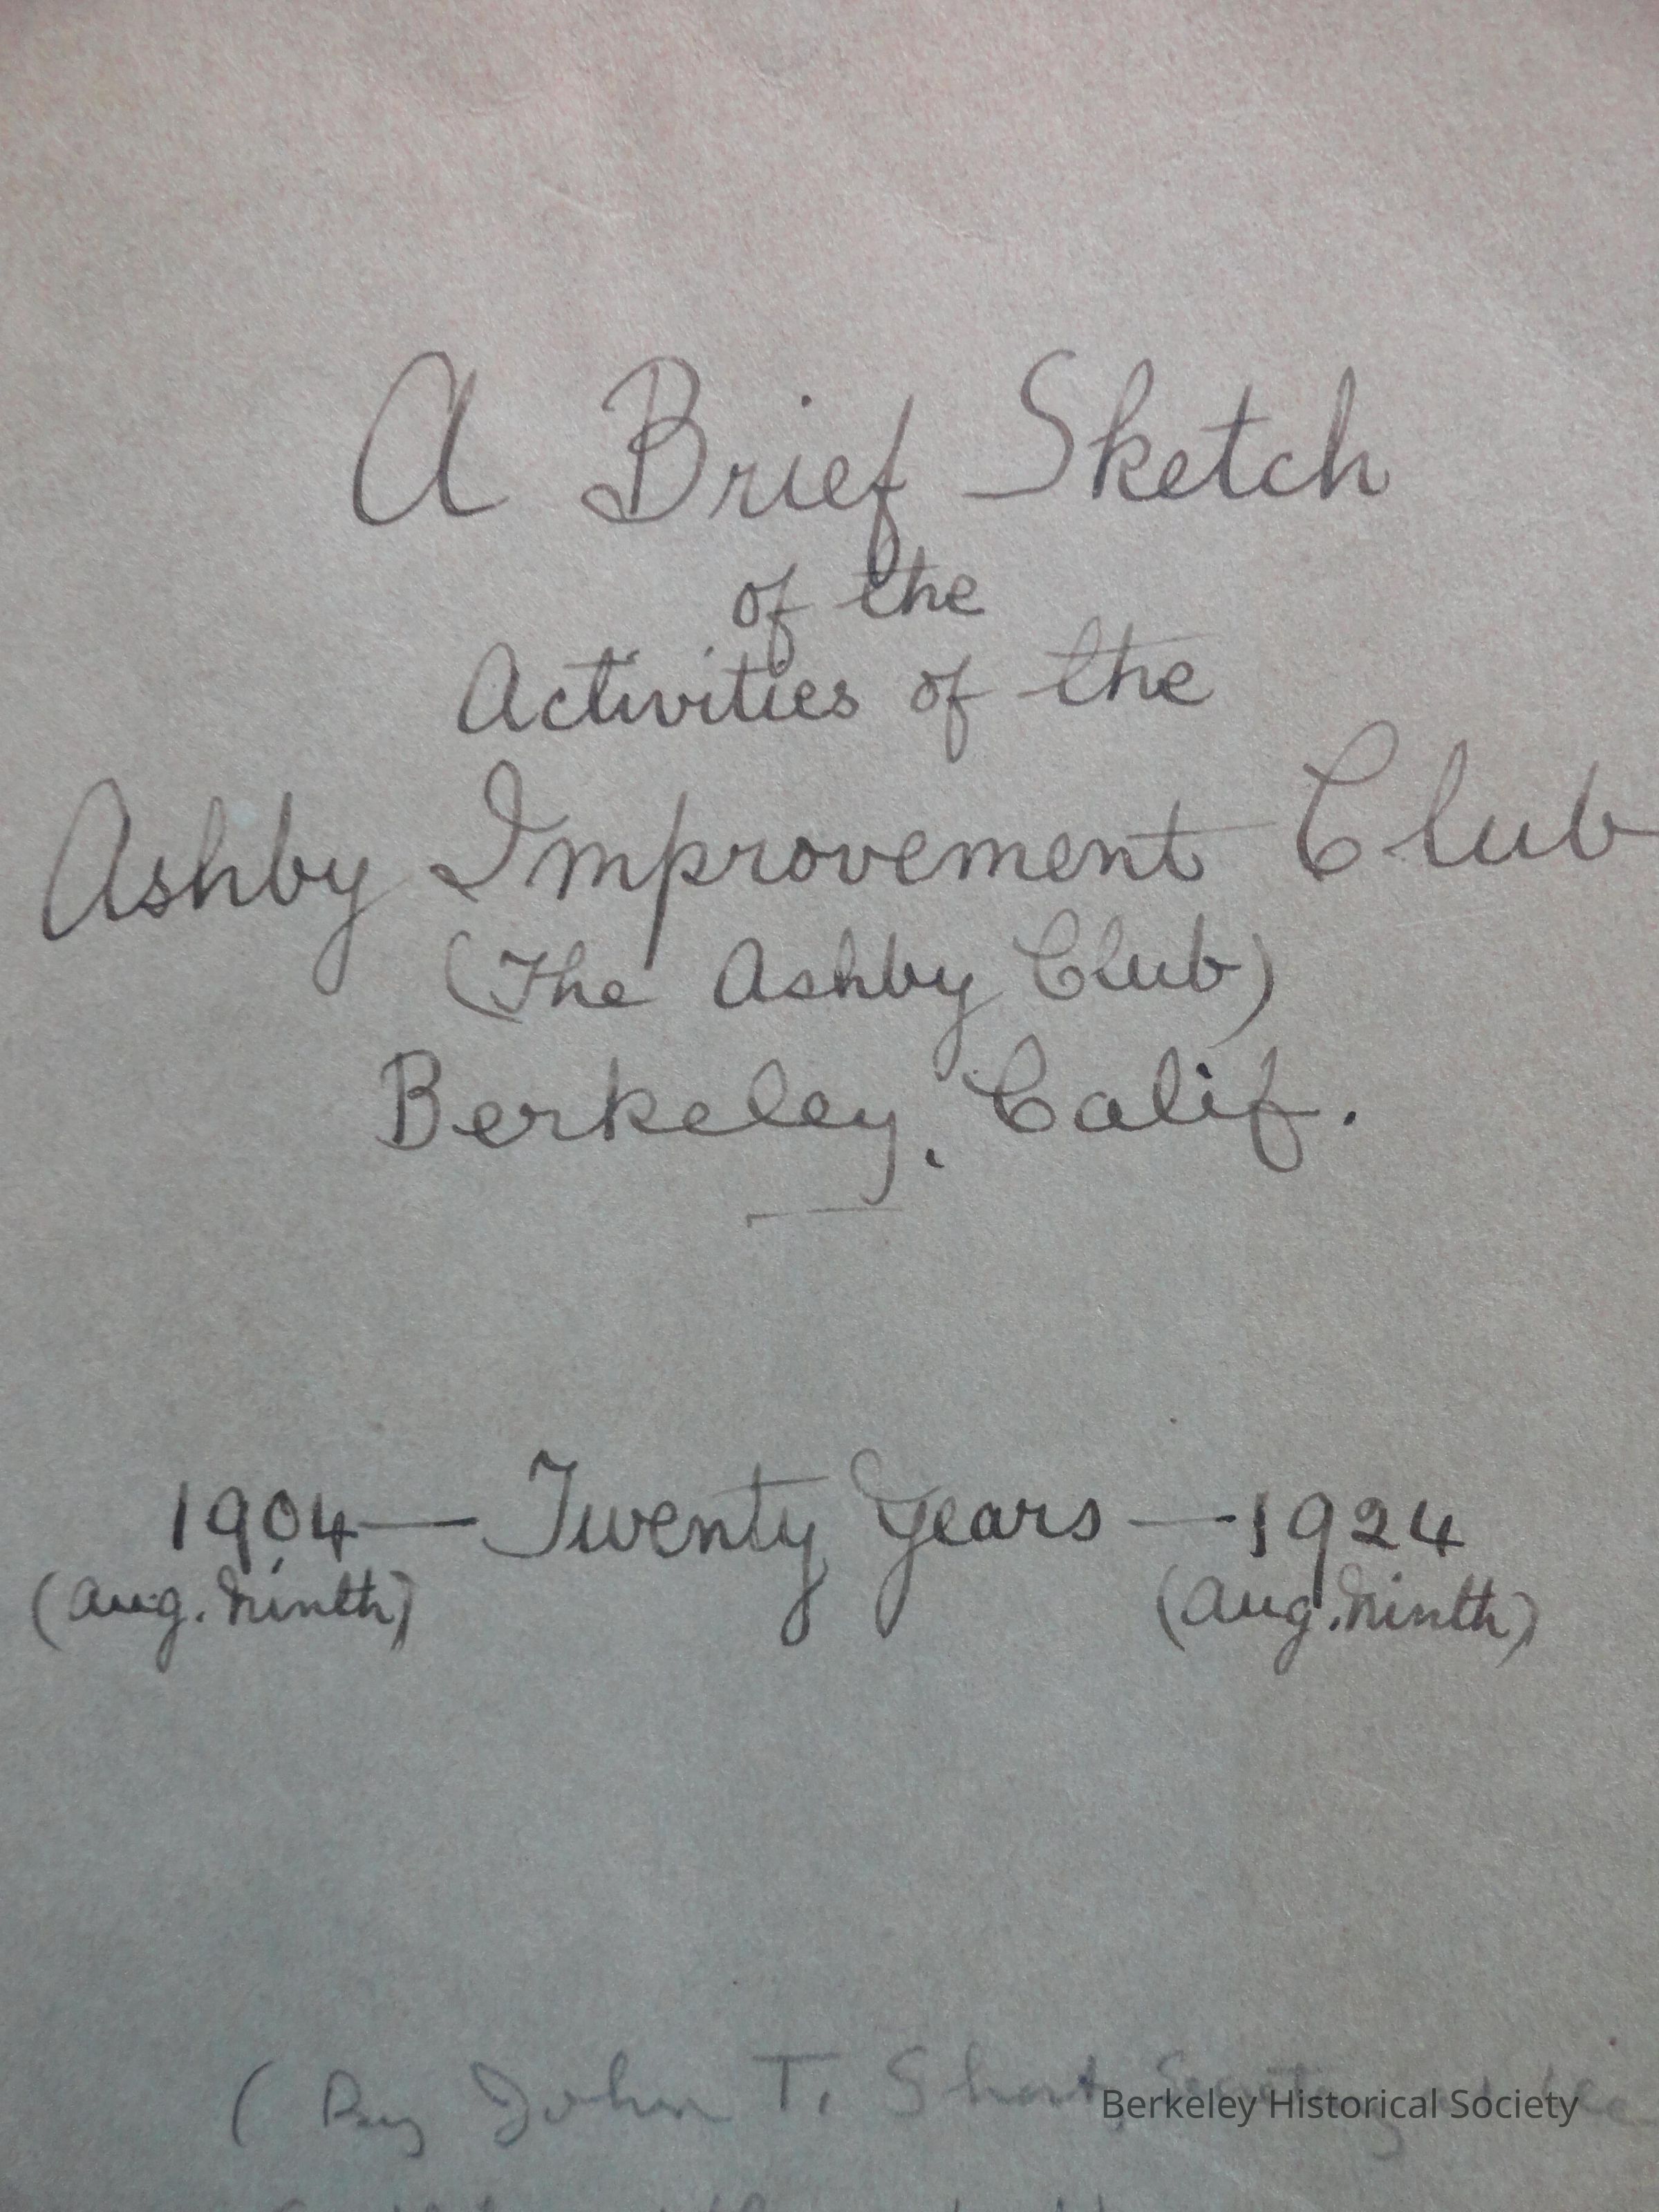 A Brief Sketch
of the
Activities of the
Ashby Improvement Club
(The Ashby Club)
Berkeley, Calif.
1904 — Twenty Years — 1924
(Aug. Ninth) (Aug. Ninth)
(By John T. Short, Secretary
Berkeley Historical Society